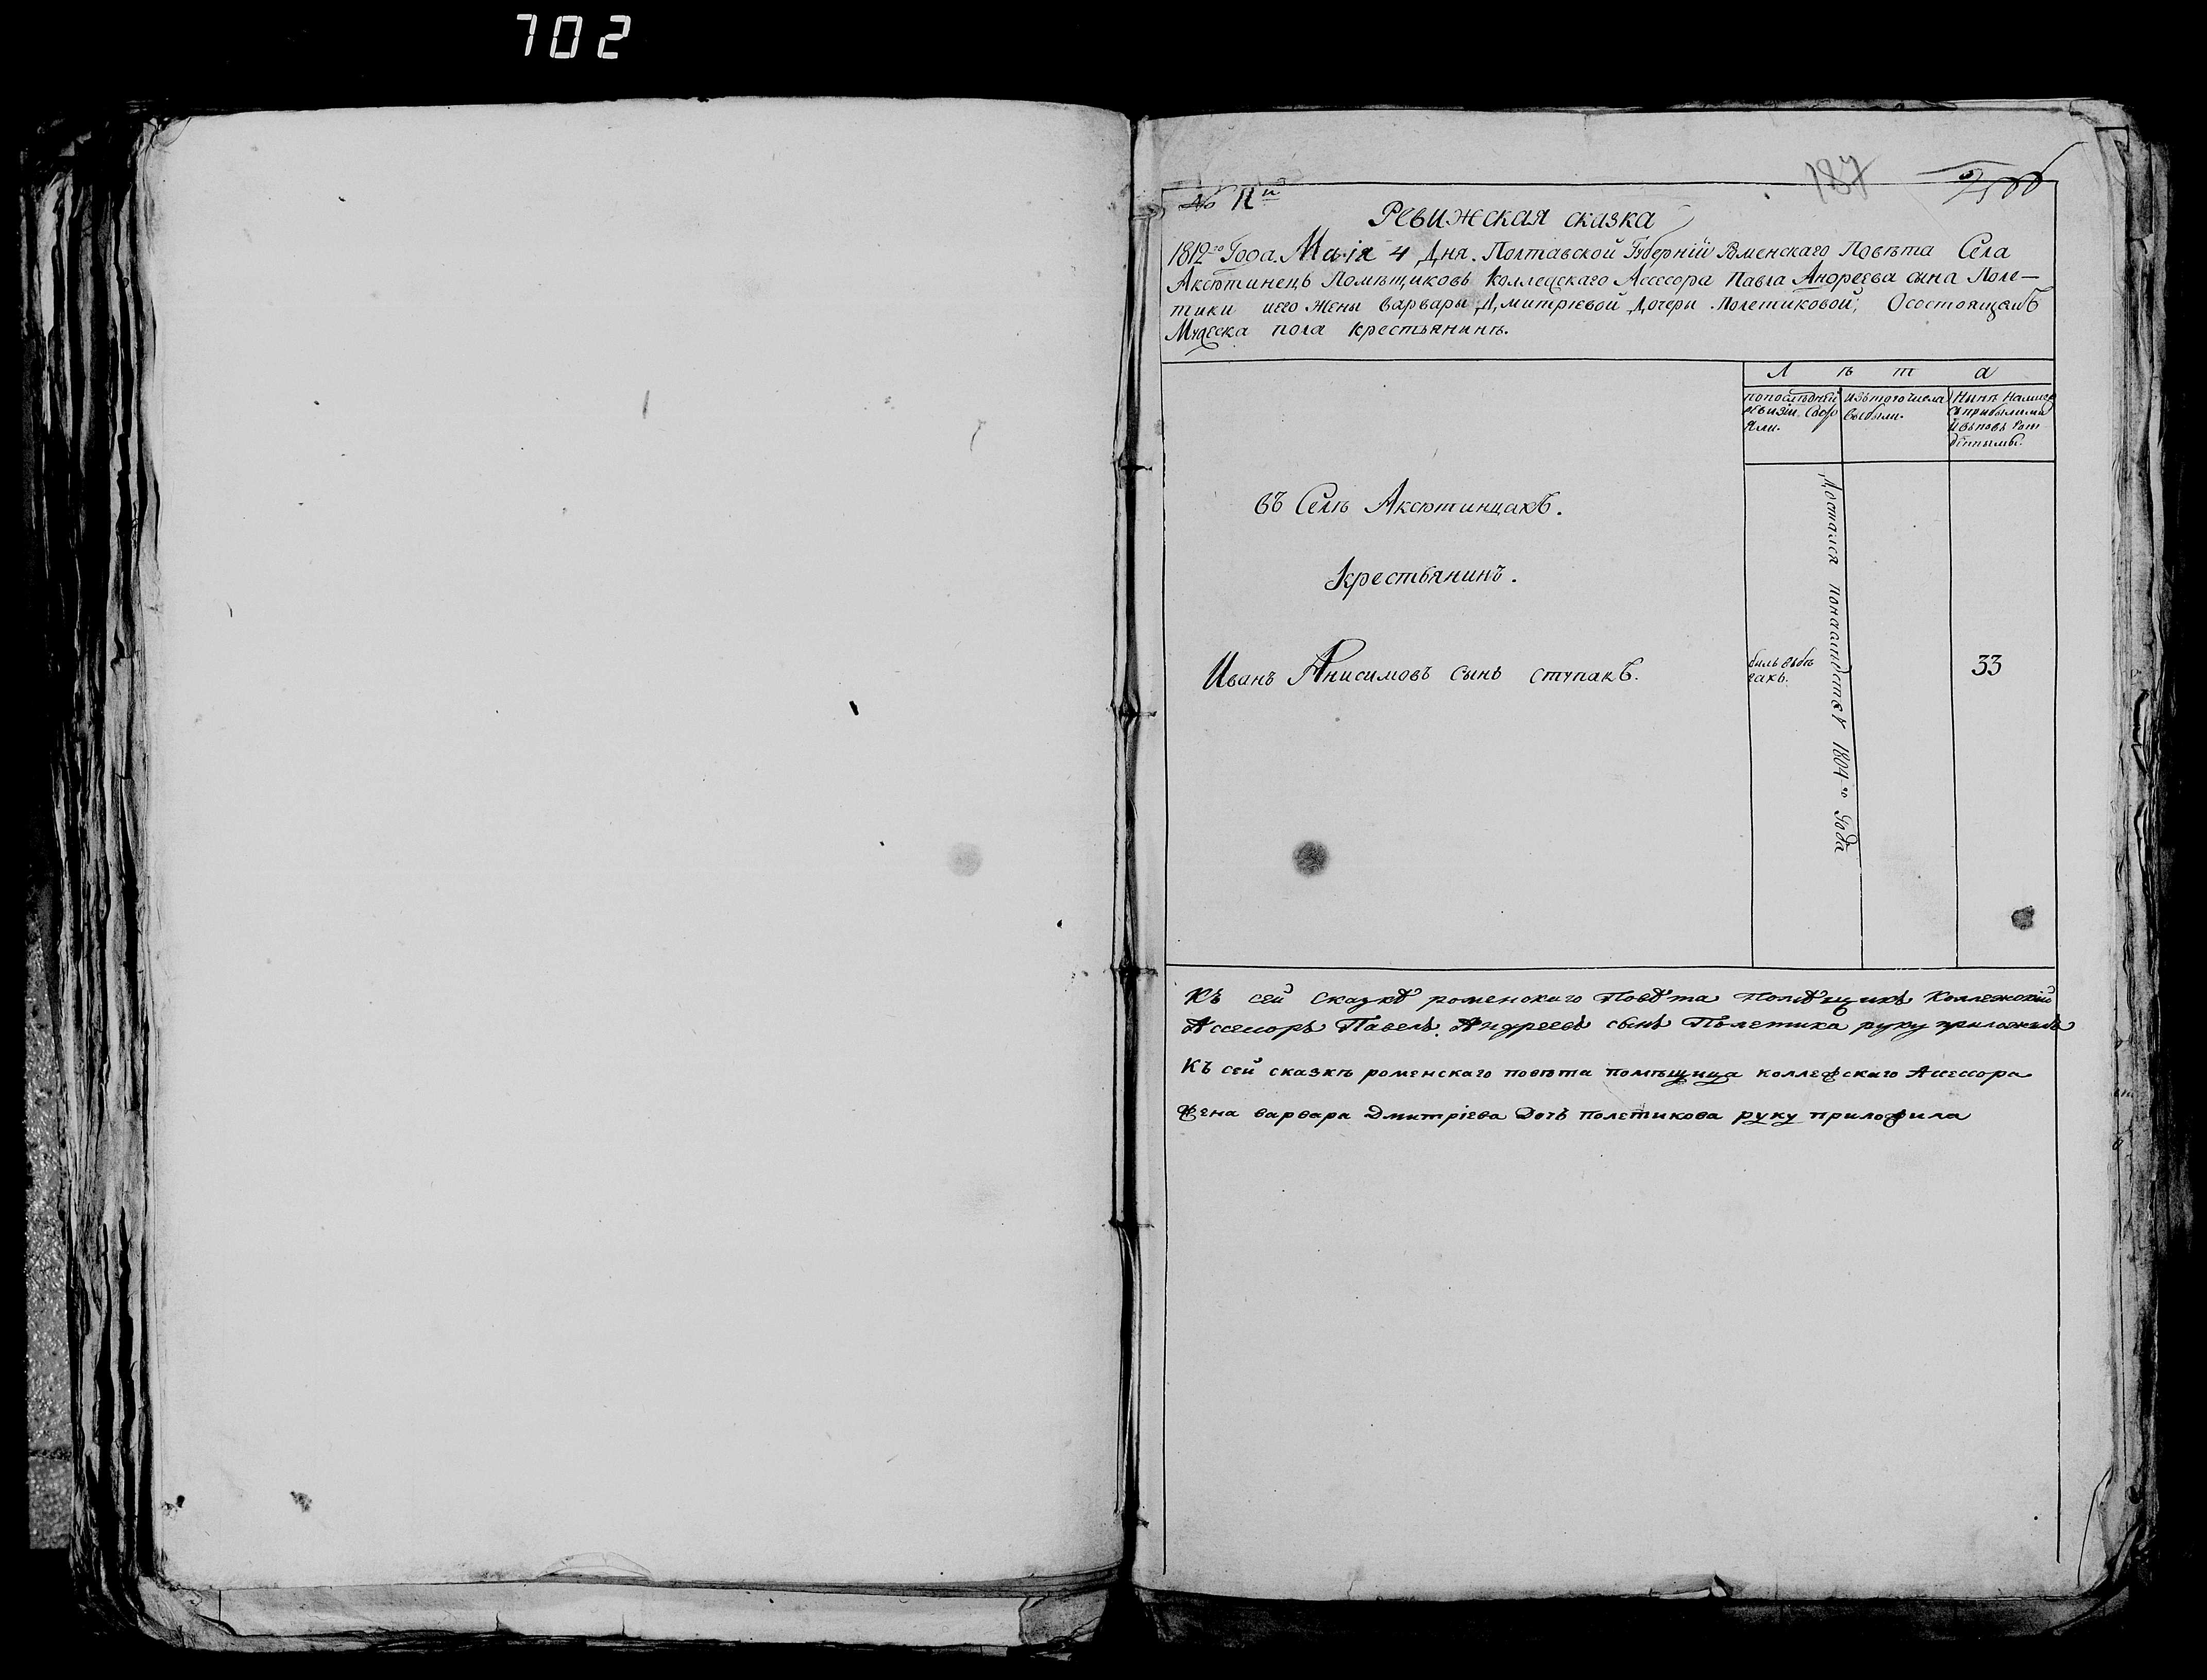 702
187
Ревижская сказка
1812го Года. Маія 4 Дня. Полтавской Губерніи Роменскаго Повѣта Села
Аксютинецъ Помѣщиковъ Коллежскаго Асессора Павла Андреева сына Поле—
тики иего Жены Варвары Дмитріевой Дочери Полетиковой, Осостоящемъ
Мужеска пола крестьянинѣ.
Л ѣ т а
попослѣдней ревизіи состояли.
изътогочисла выбыли.
Нынѣ налицо съприбылыми ивновь рожденными.
въ Селѣ Аксютинцахъ.
Крестьянинъ.
Иванъ Анисимовъ сынъ ступакъ.
билъ вбѣгахъ.
33
Достался понаслѣдству 1804го Года
Къ сей Сказкѣ роменскаго Повѣта Помѣщикъ Коллежский
Ассесоръ Павелъ Андреевъ сынъ Полетика руку приложилъ
Къ сей сказкѣ роменскаго повѣта помѣщица коллежскаго Асессора
Жена варвара Дмитріева Дочь полетикова руку приложила